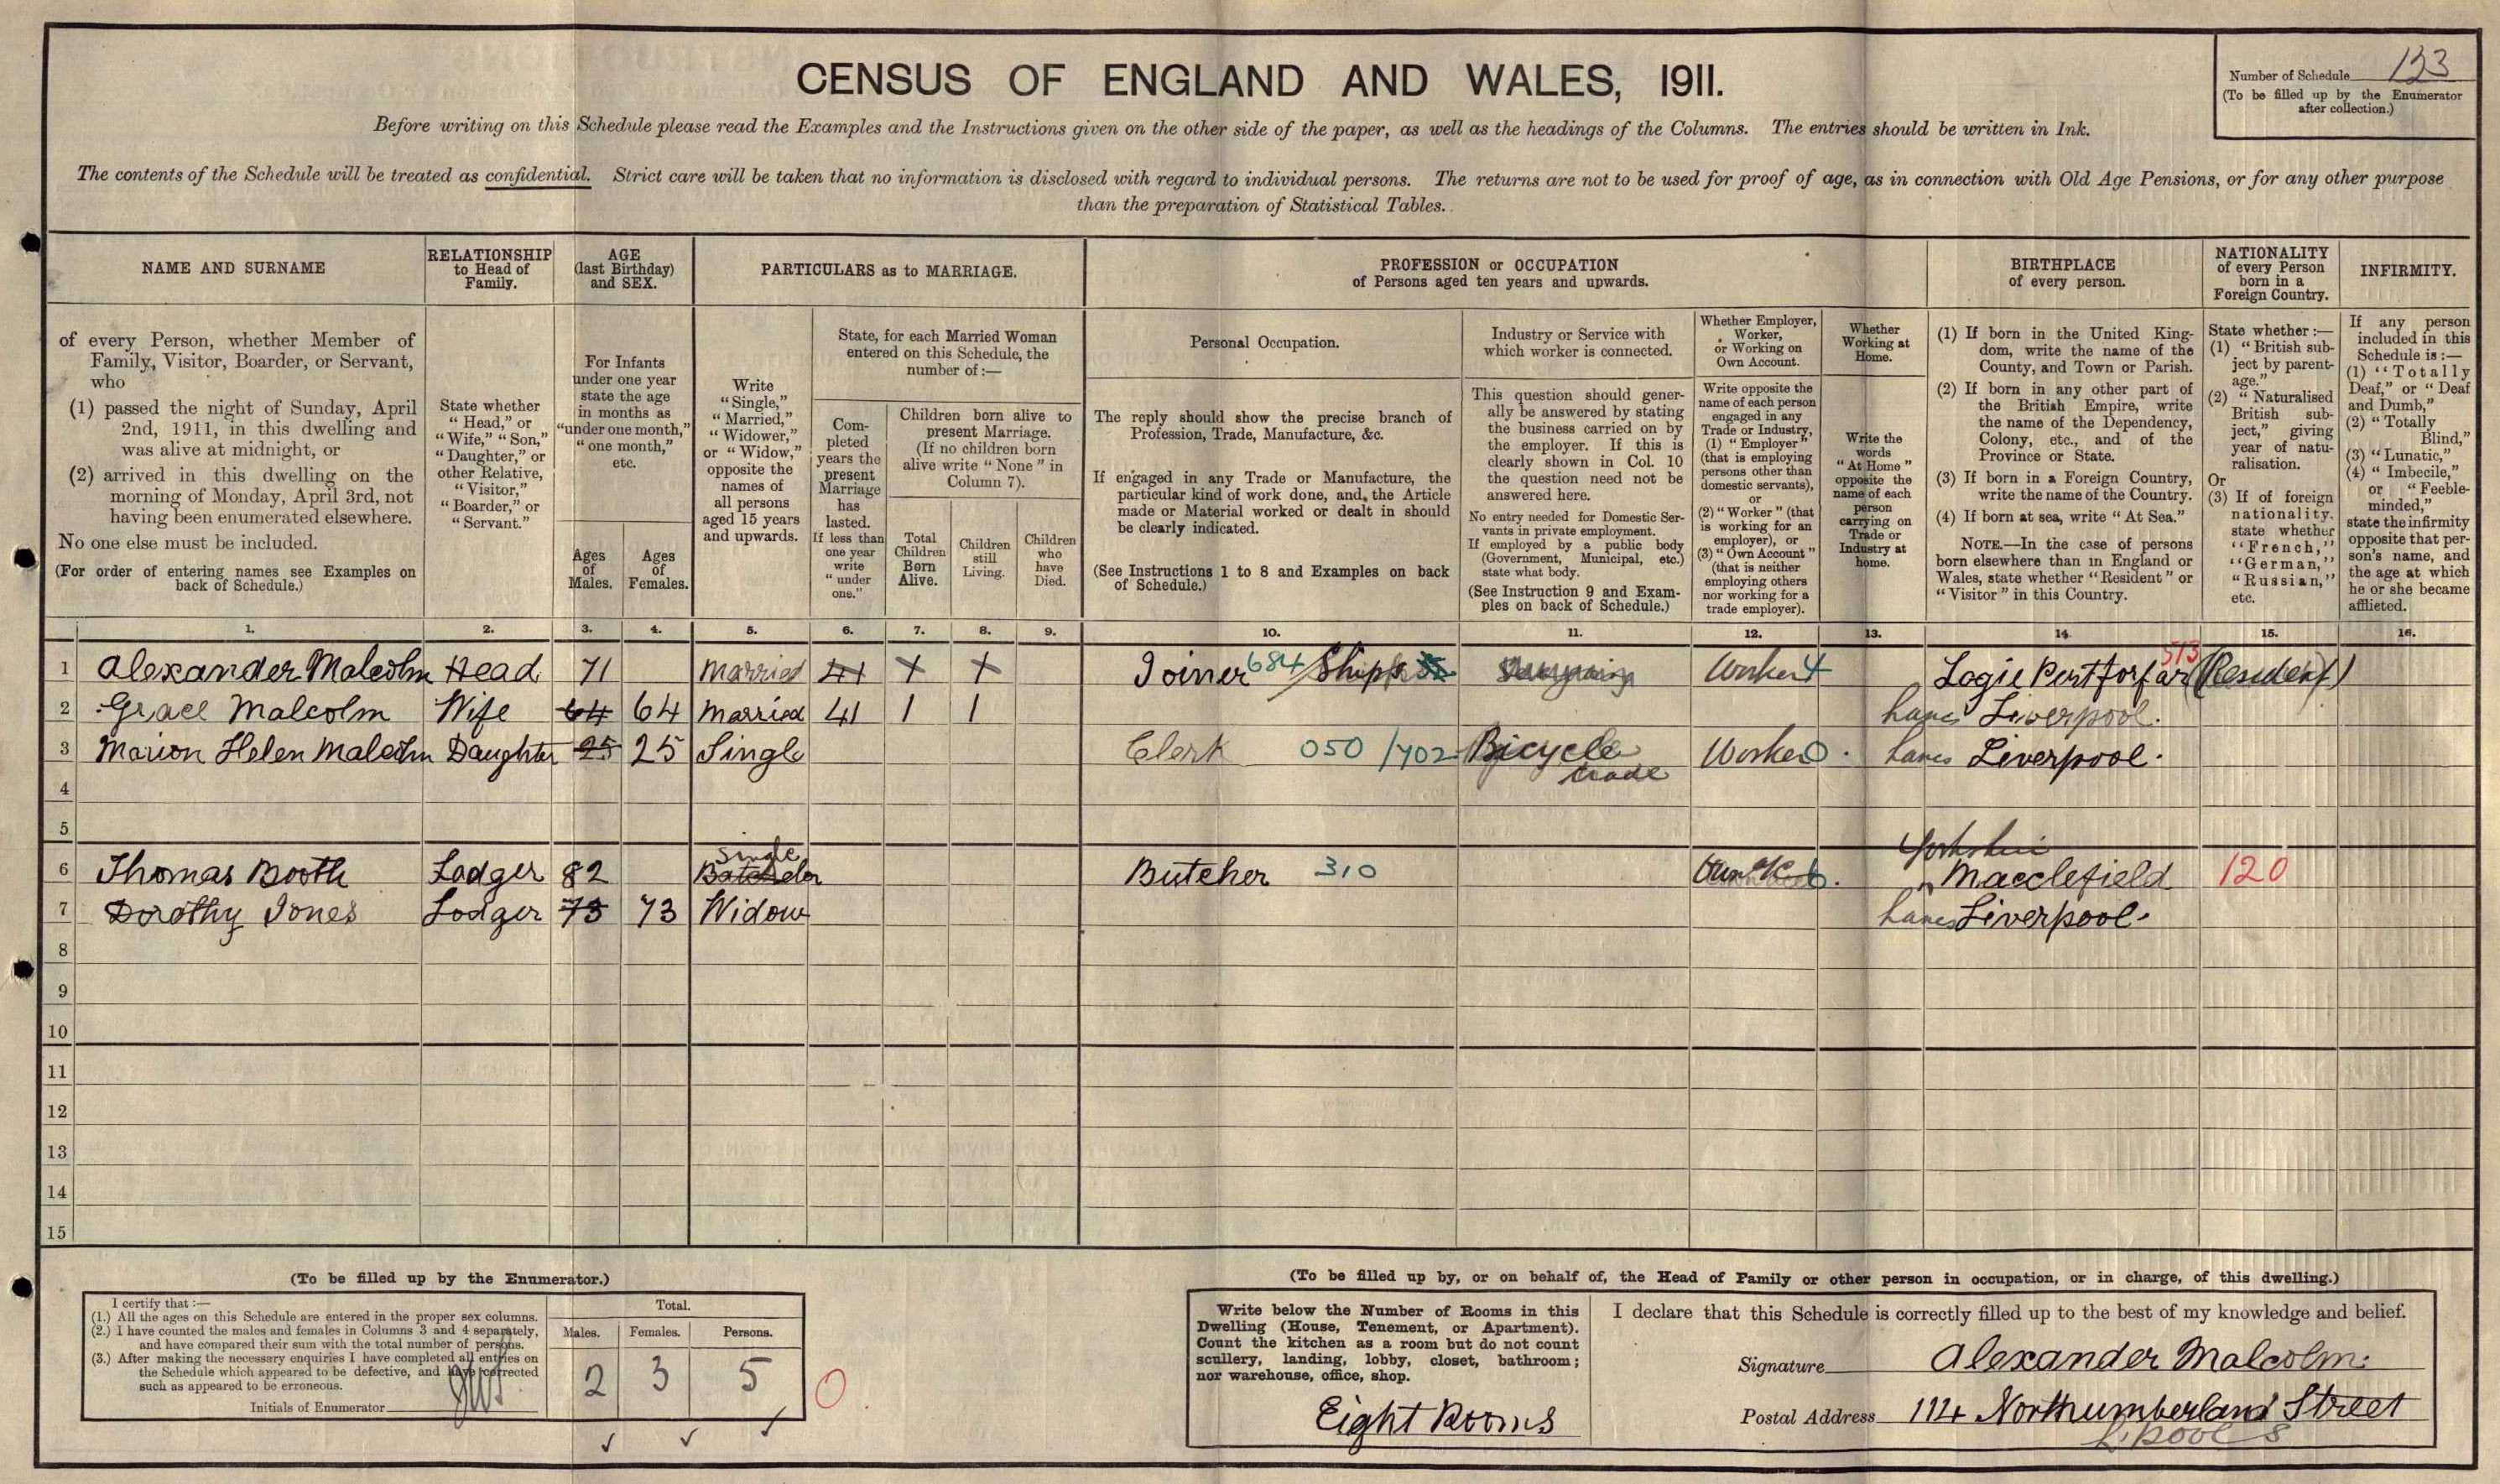 CENSUS OF ENGLAND AND WALES, 1911.
Number of Schedule 133
(To be filled up by the Enumerator
after collection.)
Before writing on this Schedule please read the Examples and the Instructions given on the other side of the paper, as well as the headings of the Columns. The entries should be written in Ink.
The contents of the Schedule will be treated as confidential. Strict care will be taken that no information is disclosed with regard to individual persons. The returns are not to be used for proof of age, as in connection with Old Age Pensions, or for any other purpose
than the preparation of Statistical Tables.
NAME AND SURNAME
of every Person, whether Member of
Family, Visitor, Boarder, or Servant,
who
(1) passed the night of Sunday, April
2nd, 1911, in this dwelling and
was alive at midnight, or
(2) arrived in this dwelling on the
morning of Monday, April 3rd, not
having been enumerated elsewhere.
No one else must be included.
(For order of entering names see Examples on
back of Schedule.)
RELATIONSHIP
to Head of
Family.
State whether
"Head," or
"Wife," "Son,"
"Daughter," or
other Relative,
"Visitor,"
"Boarder," or
"Servant."
AGE
(last Birthday)
and SEX.
For Infants
under one year
state the age
in months as
"under one month,"
"one month,"
etc.
Ages
of
Males.
Ages
of
Females.
PARTICULARS as to MARRIAGE.
Write
"Single,"
"Married,"
"Widower,"
or "Widow,"
opposite the
names of
all persons
aged 15 years
and upwards.
State, for each Married Woman
entered on this Schedule, the
number of :—
Com-
pleted
years the
present
Marriage
has
lasted.
If less than
one year
write
"under
one."
Children born alive to
present Marriage.
(If no children born
alive write "None" in
Column 7).
Total
Children
Born
Alive.
Children
still
Living.
Children
who
have
Died.
PROFESSION or OCCUPATION
of Persons aged ten years and upwards.
Personal Occupation.
The reply should show the precise branch of
Profession, Trade, Manufacture, &c.
If engaged in any Trade or Manufacture, the
particular kind of work done, and the Article
made or Material worked or dealt in should
be clearly indicated.
(See Instructions 1 to 8 and Examples on back
of Schedule.)
Industry or Service with
which worker is connected.
This question should gener-
ally be answered by stating
the business carried on by
the employer. If this is
clearly shown in Col. 10
the question need not be
answered here.
No entry needed for Domestic Ser-
vants in private employment.
If employed by a public body
(Government, Municipal, etc.)
state what body.
(See Instruction 9 and Exam-
ples on back of Schedule.)
Whether Employer,
Worker,
or Working on
Own Account.
Write opposite the
name of each person
engaged in any
Trade or Industry,
(1) "Employer"
(that is employing
persons other than
domestic servants),
or
(2) "Worker" (that
is working for an
employer), or
(3) "Own Account"
(that is neither
employing others
nor working for a
trade employer).
Whether
Working at
Home.
Write the
words
"At Home"
opposite the
name of each
person
carrying on
Trade or
Industry at
home.
BIRTHPLACE
of every person.
(1) If born in the United King-
dom, write the name of the
County, and Town or Parish.
(2) If born in any other part of
the British Empire, write
the name of the Dependency,
Colony, etc., and of the
Province or State.
(3) If born in a Foreign Country,
write the name of the Country.
(4) If born at sea, write "At Sea."
NOTE.—In the case of persons
born elsewhere than in England or
Wales, state whether "Resident" or
"Visitor" in this Country.
NATIONALITY
of every Person
born in a
Foreign Country.
State whether :—
(1) "British sub-
ject by parent-
age."
(2) "Naturalised
British sub-
ject," giving
year of natu-
ralisation.
Or
(3) If of foreign
nationality,
state whether
"French,"
"German,"
"Russian,"
etc.
INFIRMITY.
If any person
included in this
Schedule is :—
(1) "Totally
Deaf," or "Deaf
and Dumb,"
(2) "Totally
Blind,"
(3) "Lunatic,"
(4) "Imbecile,"
or "Feeble-
minded,"
state the infirmity
opposite that per-
son's name, and
the age at which
he or she became
afflicted.
1. 2. 3. 4. 5. 6. 7. 8. 9. 10. 11. 12. 13. 14. 15. 16.
1 Alexander Malcolm Head 71 Married 41 + + Joiner 684 Ships Worker 4 Logie Pert Forfar 513 (Resident)
2 Grace Malcolm Wife 64 64 Married 41 1 1 Lancs Liverpool.
3 Marion Helen Malcolm Daughter 25 25 Single Clerk 050 /702 Bicycle trade Worker 0 Lancs Liverpool.
4
5
6 Thomas Booth Lodger 82 Single Batchelor Butcher 310 Own a/c 6 Yorkshire Macclefield 120
7 Dorothy Jones Lodger 73 73 Widow Lancs Liverpool.
8
9
10
11
12
13
14
15
(To be filled up by the Enumerator.)
I certify that :—
(1.) All the ages on this Schedule are entered in the proper sex columns.
(2.) I have counted the males and females in Columns 3 and 4 separately,
and have compared their sum with the total number of persons.
(3.) After making the necessary enquiries I have completed all entries on
the Schedule which appeared to be defective, and have corrected
such as appeared to be erroneous.
Initials of Enumerator
Total.
Males. Females. Persons.
2 3 5 0
(To be filled up by, or on behalf of, the Head of Family or other person in occupation, or in charge, of this dwelling.)
Write below the Number of Rooms in this
Dwelling (House, Tenement, or Apartment).
Count the kitchen as a room but do not count
scullery, landing, lobby, closet, bathroom;
nor warehouse, office, shop.
Eight Rooms
I declare that this Schedule is correctly filled up to the best of my knowledge and belief.
Signature Alexander Malcolm.
Postal Address 114 Northumberland Street
L'pool S